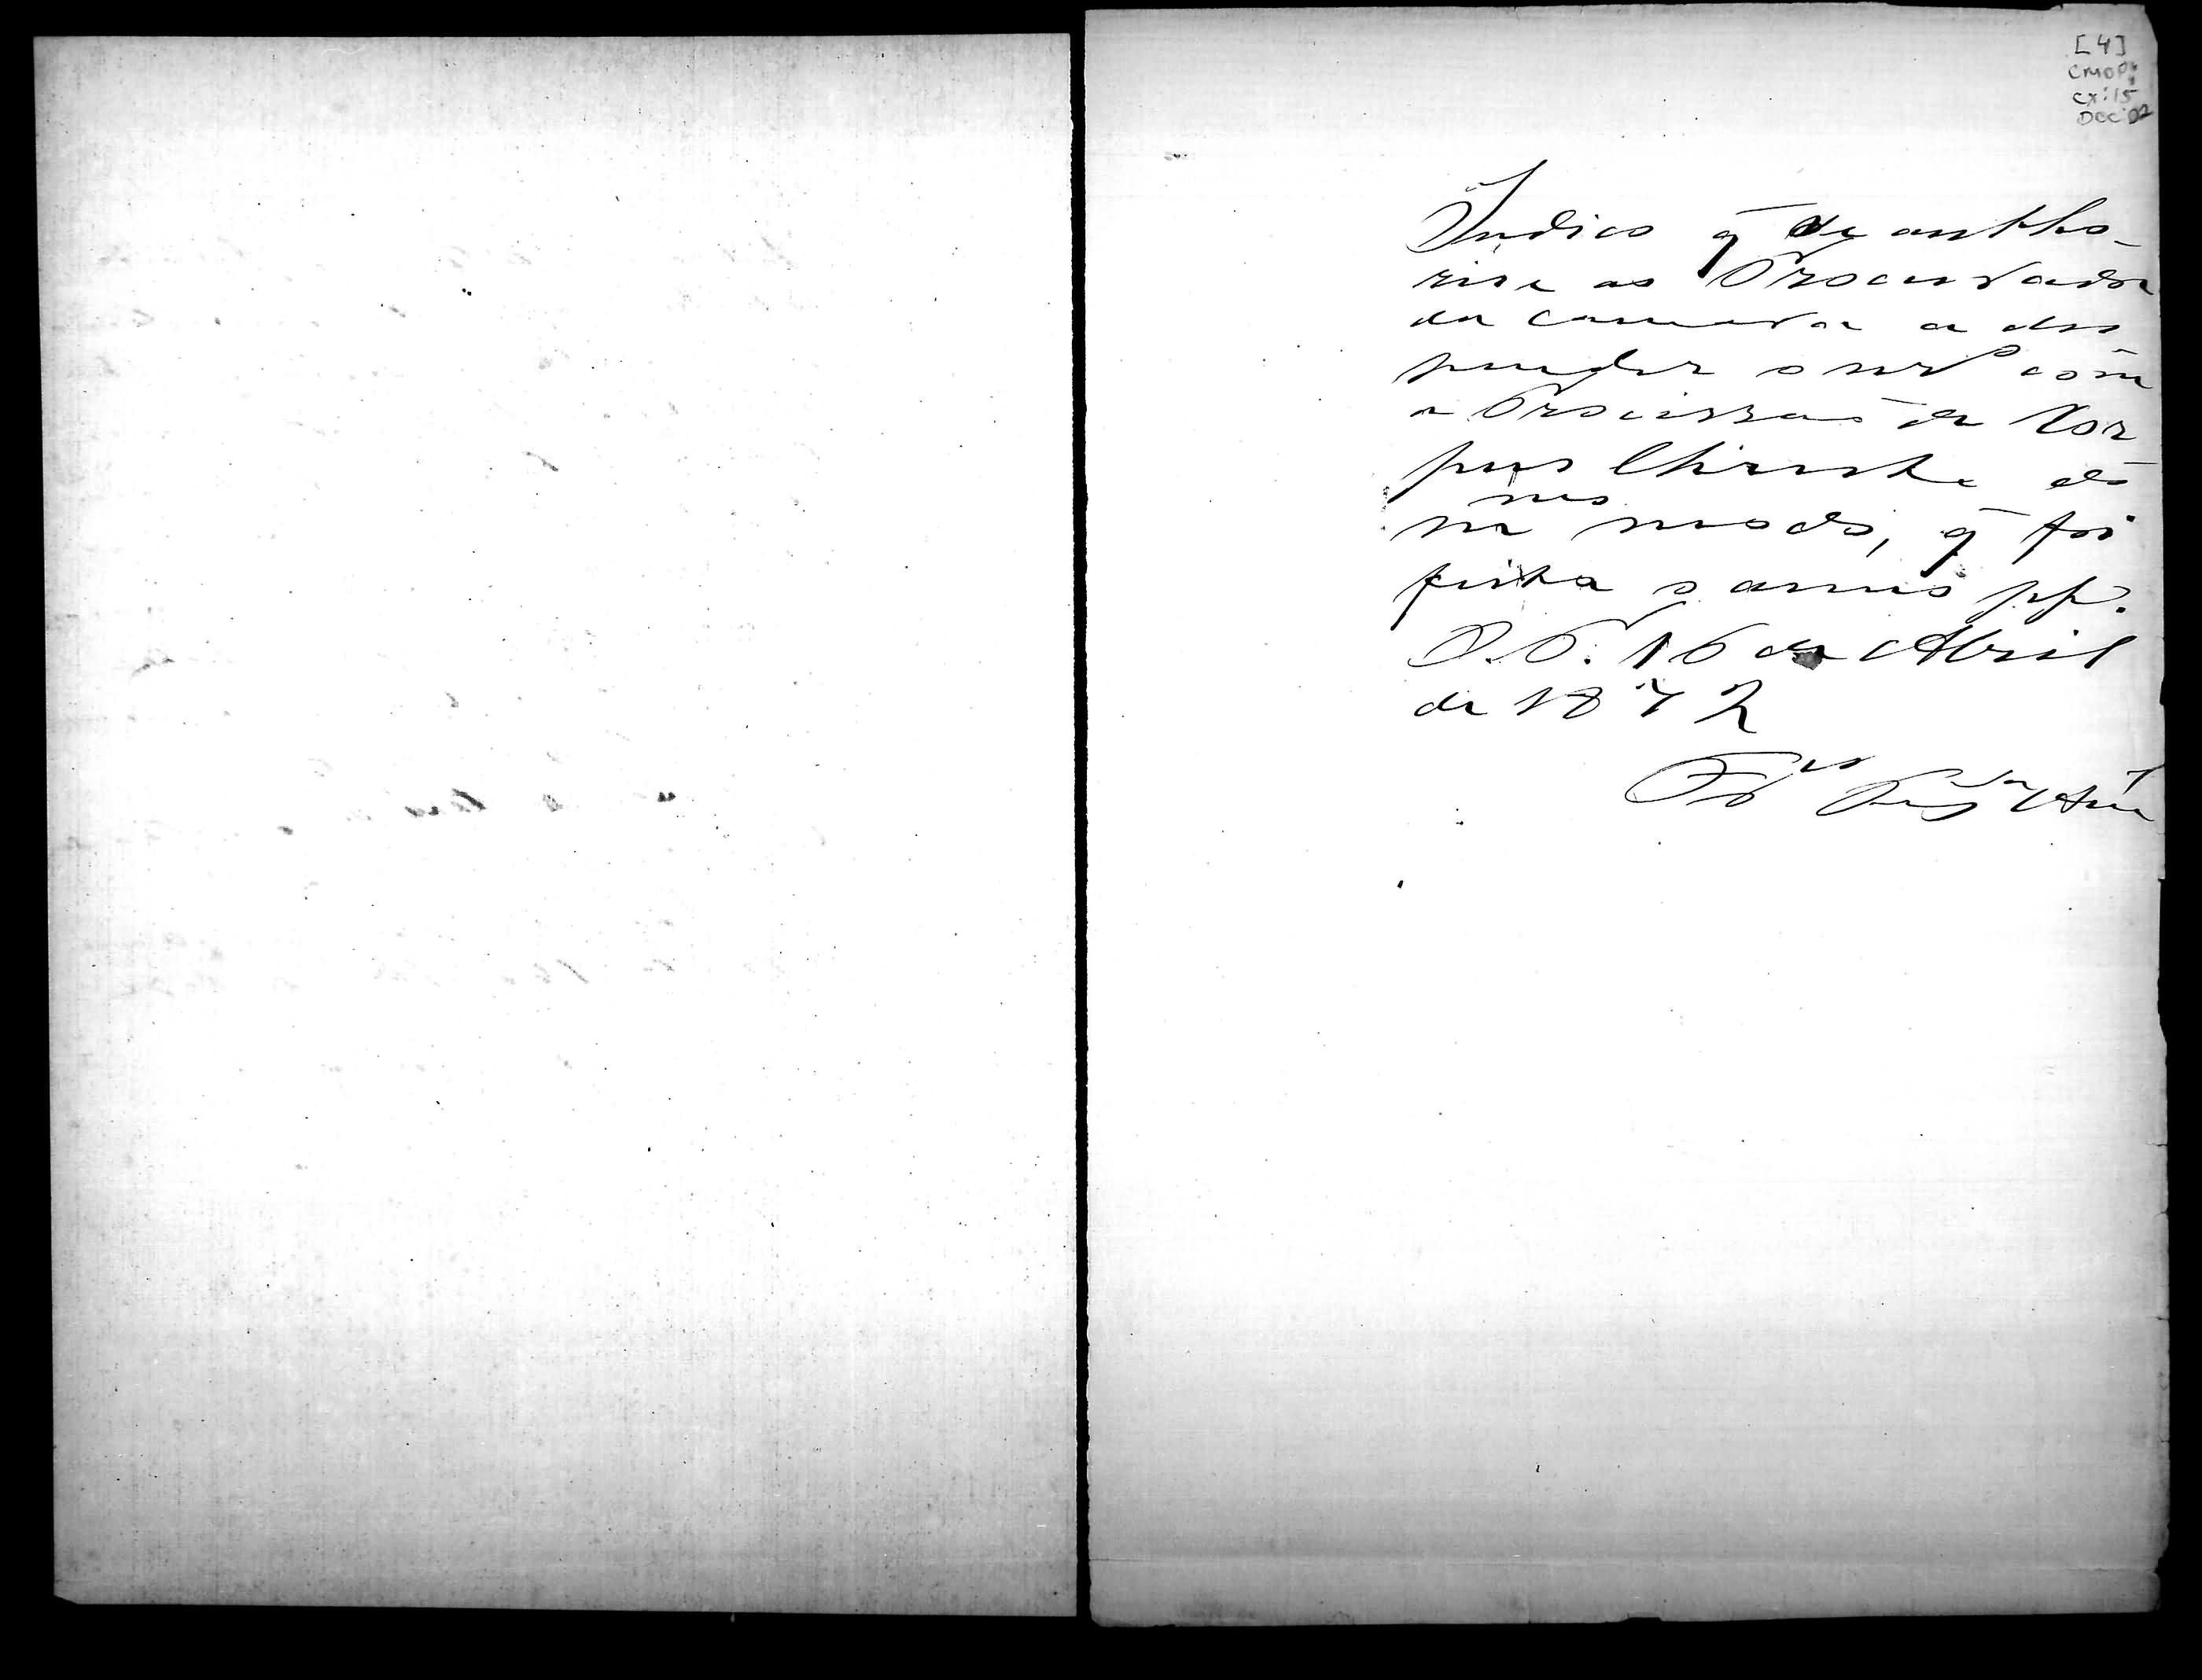 [4]
CMOP.
CX: 15
DOC: 02
Indico q̃ se autho-
rise ao Procurador
da camara a des
pender o nes.º com
a Procissaõ de Cor
pus Christe do
mesmo modo, q̃ foi
feita o anno pp.
O. P. 16 de Abril
de 1872